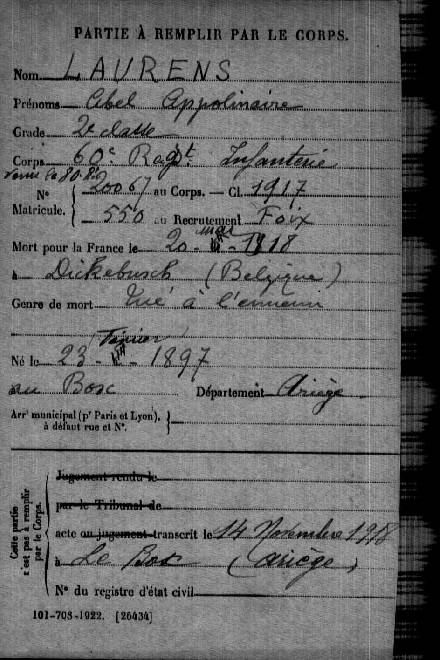 PARTIE À REMPLIR PAR LE CORPS.
Nom LAURENS
Prénoms Abel Appolinaire
Grade 2e classe
Corps 60e Ragt. Infanterie
N° Matricule. 20067 au Corps. — Cl. 1917
550 au Recrutement Foix
Mort pour la France le 20 - mai - 1918
à Dickebusch (Belgique)
Genre de mort Tué à l'ennemi
Né le 23 - Février - 1897
au Bosc Département Ariège
Arr' municipal (p' Paris et Lyon), à défaut rue et N°.
Cette partie n'est pas à remplir par le Corps.
Jugement rendu le
par le Tribunal de
acte ou jugement transcrit le 14 Novembre 1918
à Le Bosc (Ariège)
N° du registre d'état civil
101-708-1922. [26434]